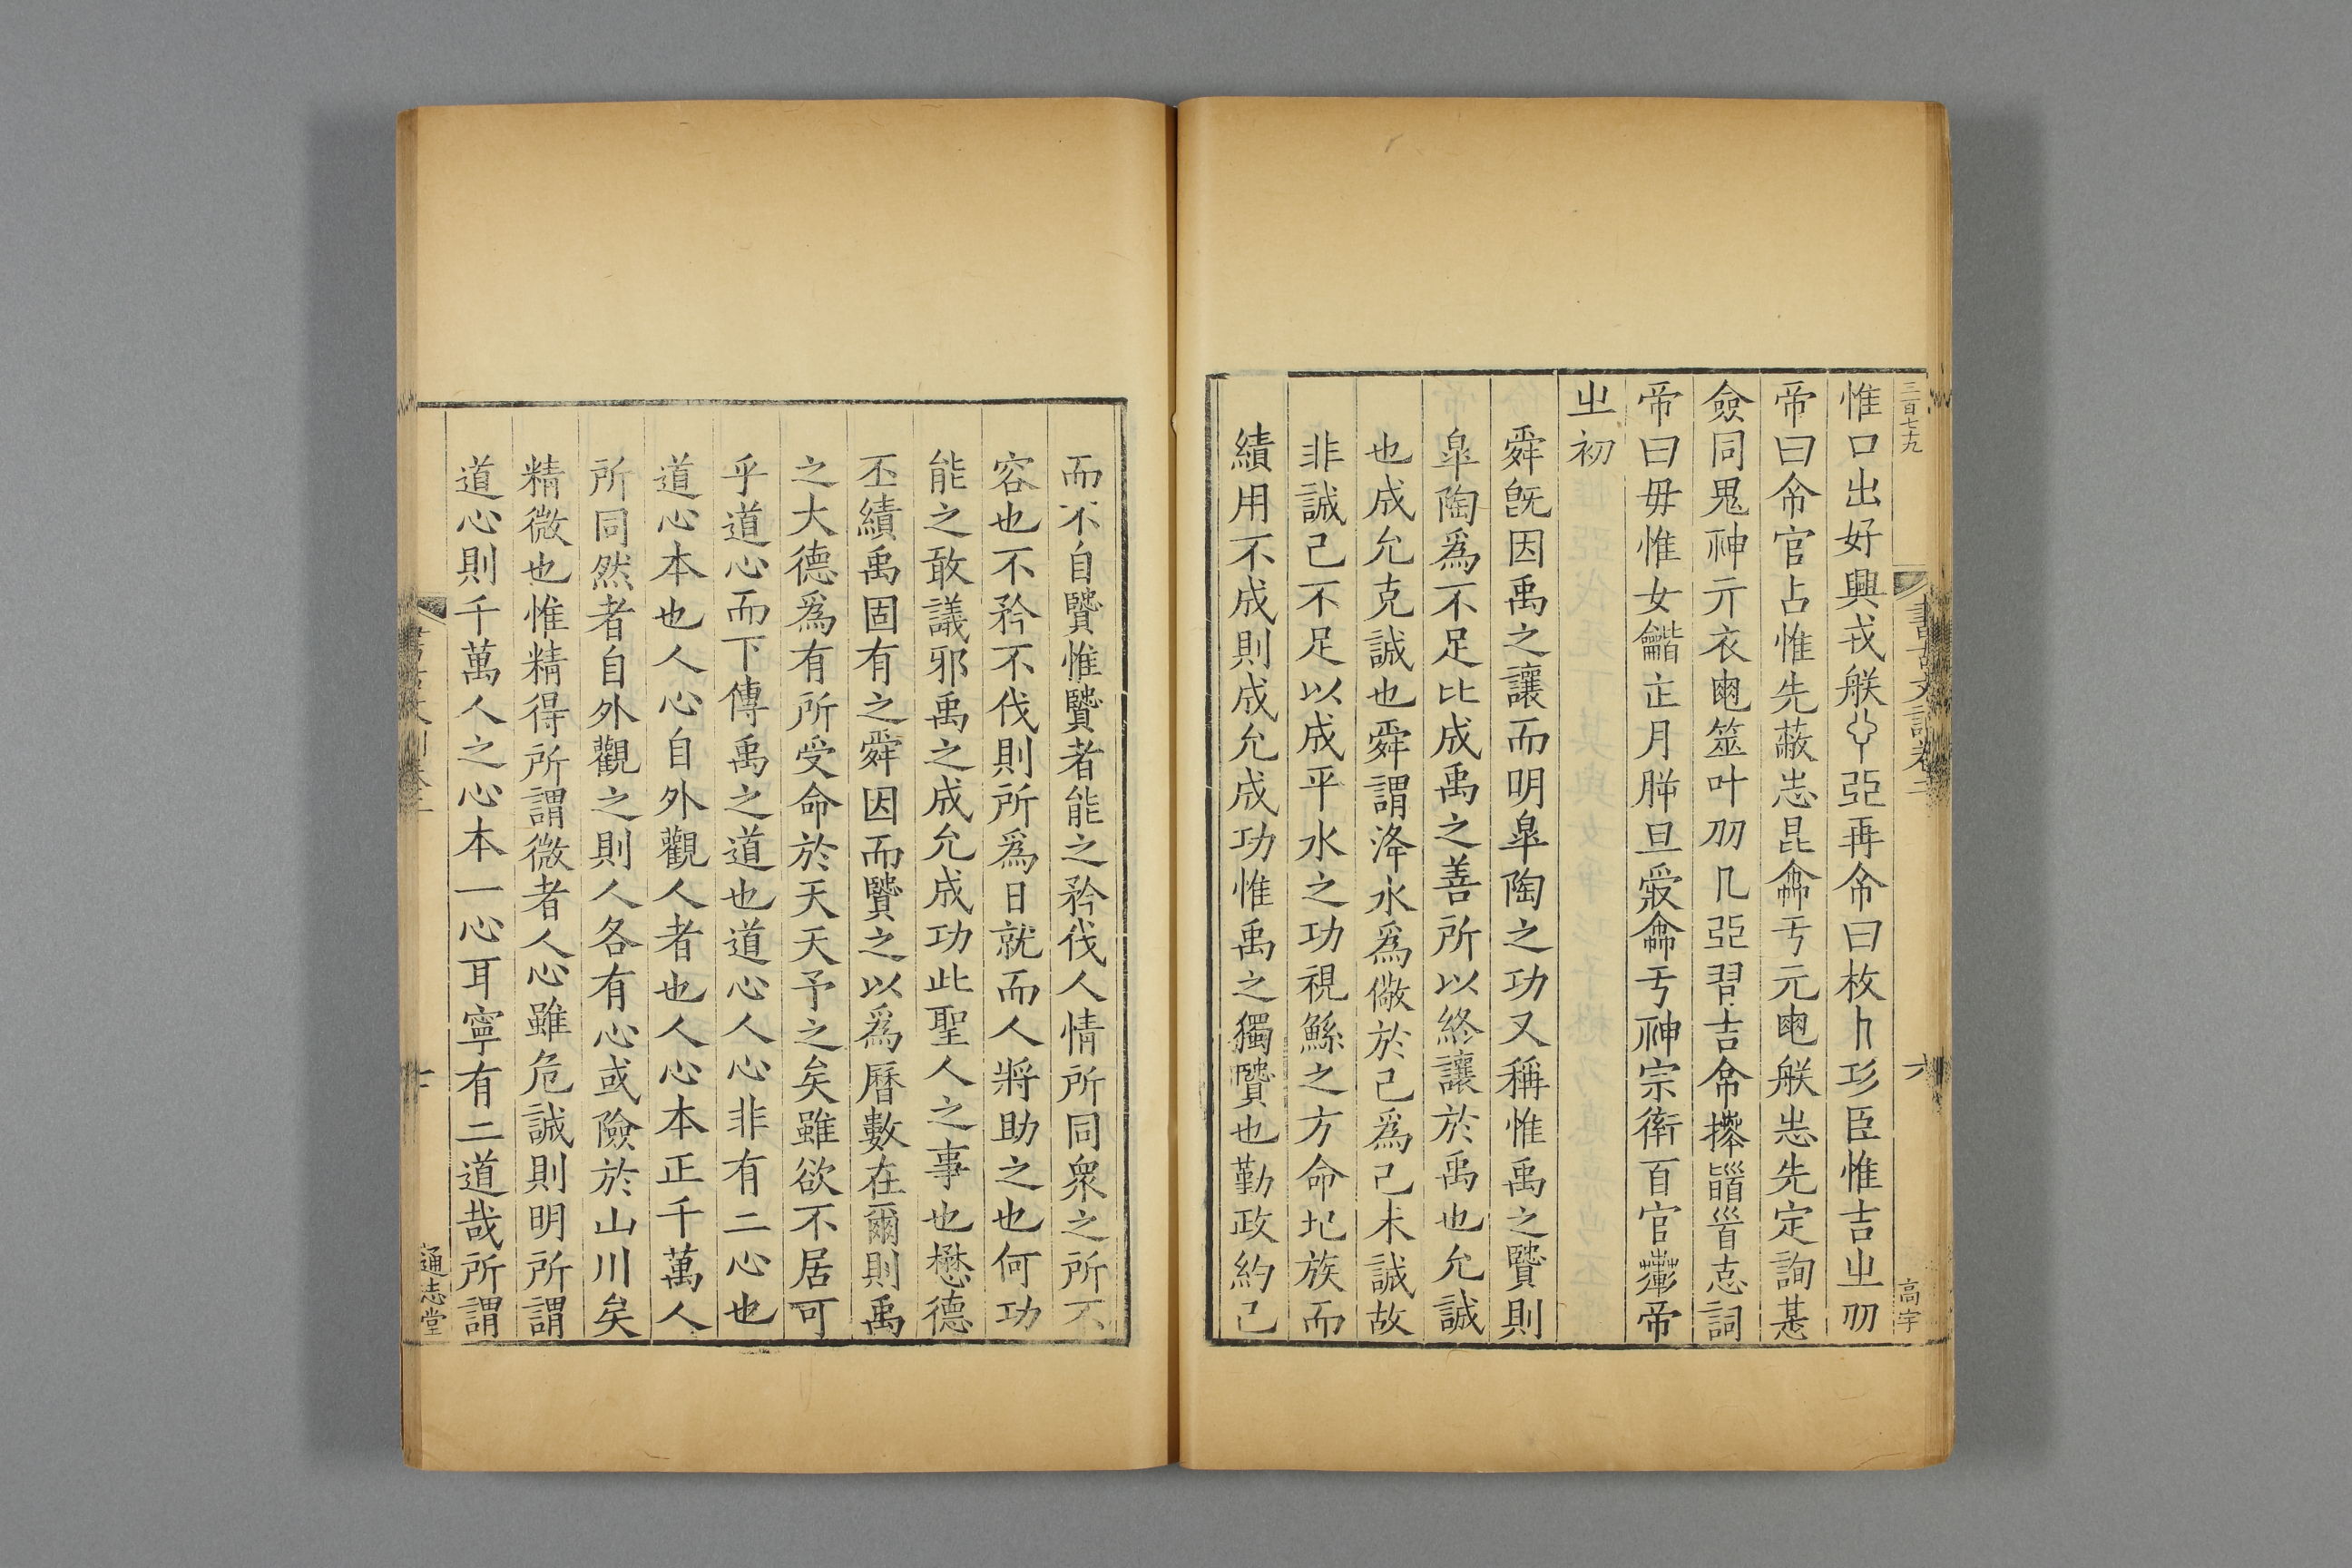 三百七九
書古文訓卷二
六
高宇
惟口出好興戎朕𠧩亞再命曰枚卜㓛臣惟吉㞢刅
帝曰命官占惟先蔽志昆龠亏元黽朕志先定詢甚
僉同𢇲神亓衣黽筮叶刅𠘧亞習吉帝𢷎𩒨𩠐志詞
帝曰毋惟女龤正月𦙍旦𤔔龠亏神宗𧗿百官𧃲帝
㞢初
舜旣因禹之讓而明臯陶之功又稱惟禹之贒則
臯陶爲不足比成禹之善所以終讓於禹也允誠
也成允克誠也舜謂洚水爲儆於己爲己未誠故
非誠己不足以成平水之功視鯀之方命圮族而
績用不成則成允成功惟禹之獨贒也勤政約己
而不自贒惟贒者能之矜伐人情所同衆之所不
容也不矜不伐則所爲日就而人將助之也何功
能之敢議邪禹之成允成功此聖人之事也懋德
丕績禹固有之舜因而贒之以爲曆數在爾則禹
之大德爲有所受命於天天予之矣雖欲不居可
乎道心而下傳禹之道也道心人心非有二心也
道心本也人心自外觀人者也人心本正千萬人
所同然者自外觀之則人各有心或險於山川矣
精微也惟精得所謂微者人心雖危誠則明所謂
道心則千萬人之心本一心耳寧有二道哉所謂
通志堂